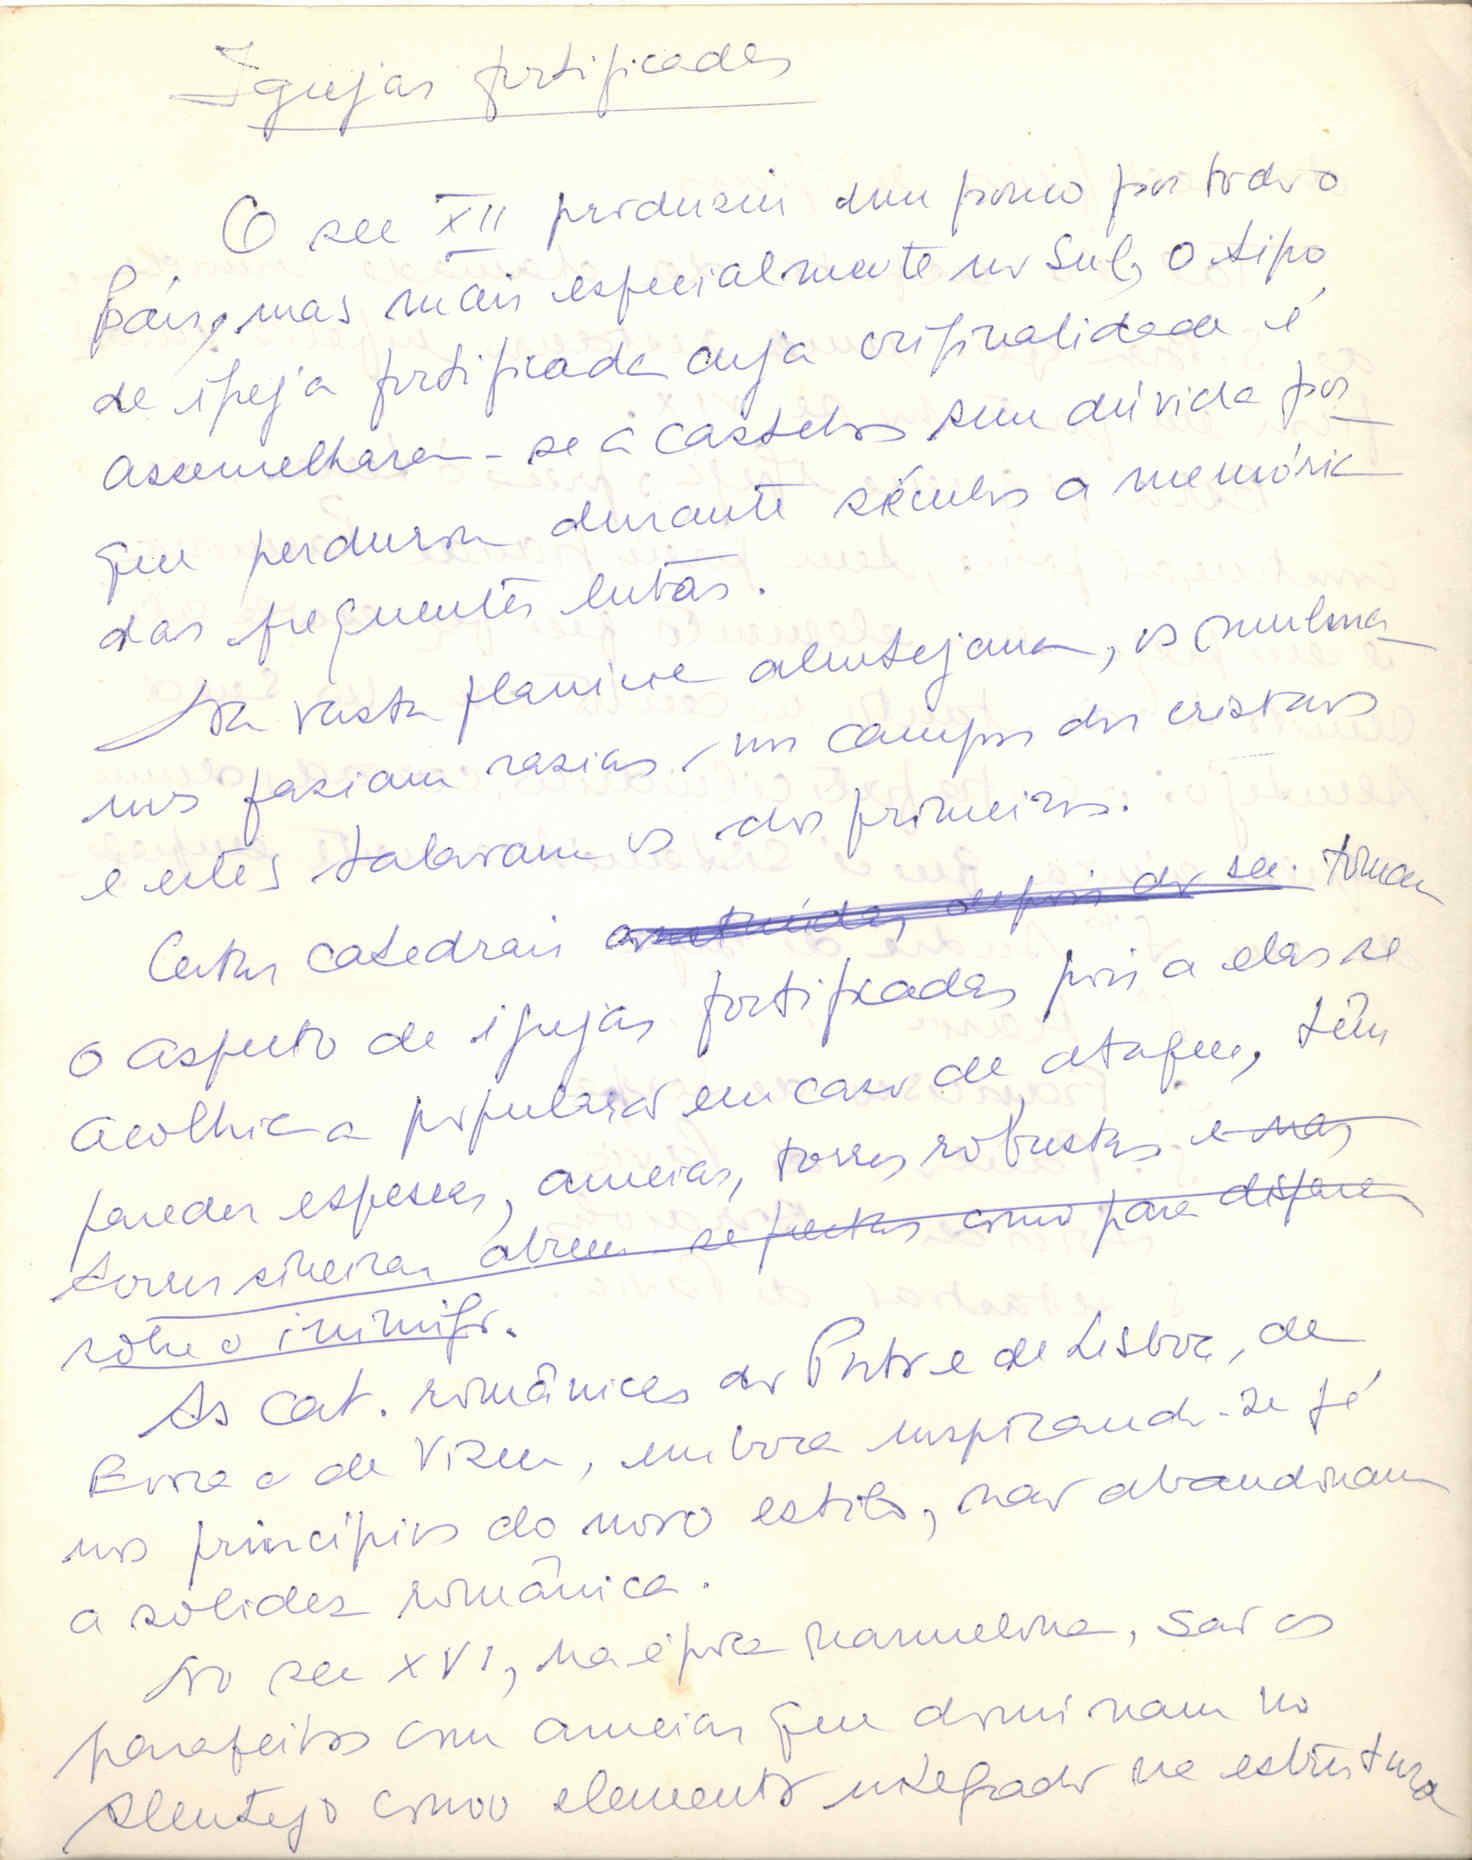 Igrejas fortificadas
O sec XII produziu um pouco por todo o
País, mas mais especialmente no Sul, o tipo
de igreja fortificada cuja originalidade é
assemelharem-se a castelos sem dúvida por
que perduram durante séculos a memória
das frequentes lutas.
Na vasta planicie alentejana, os mulsma
nos faziam razias nos campos dos cristãos
e estes talavam os dos primeiros.
Certas catedrais construídas depois do sec. tomam
o aspecto de igrejas fortificadas pois a elas se
acolhia a população em caso de ataque, têm
paredes espessas, ameias, torres robustas e nas
torres sineiras abrem-se frestas como para disparar
sobre o inimigo.
As cat. românicas do Porto e de Lisboa, de
Evora e de Viseu, embora inspirando-se já
nos princípios do novo estilo, não abandonam
a solidez românica.
No sec XVI, na época manuelina, são os
parapeitos com ameias que dominam no
Alentejo como elemento integrador na estrutura